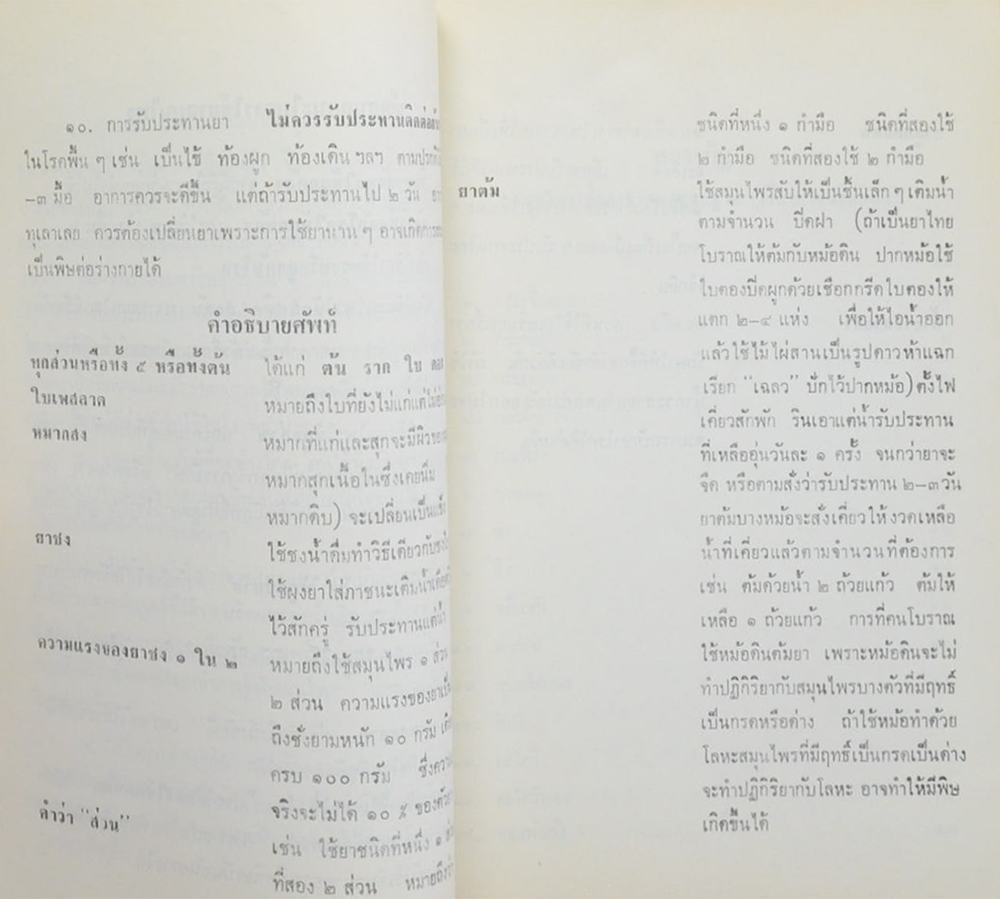 ๑๐. การรับประทานยา ไม่ควรรับประทานติดต่อกัน
ในโรคพื้น ๆ เช่น เป็นไข้ ท้องผูก ท้องเดิน ฯลฯ
–๓ มื้อ อาการควรจะดีขึ้น แต่ถ้ารับประทานไป ๒ วัน
ทุเลาเลย ควรต้องเปลี่ยนยาเพราะการใช้ยานาน ๆ อาจเกิดการ
เป็นพิษต่อร่างกายได้
คำอธิบายศัพท์
ทุกส่วนหรือทั้ง ๕ หรือทั้งต้น ได้แก่ ต้น ราก ใบ
ใบเพสลาด หมายถึงใบที่ยังไม่แก่แต่ไม่
หมากสง หมากที่แก่และสุกจะมีผิว
หมากสุกเนื้อในซึ่งเคยนิ่ม
หมากดิบ) จะเปลี่ยนเป็นแข็ง
ยาชง ใช้ชงน้ำดื่มทำวิธีเดียวกับชง
ใช้ผงยาใส่ภาชนะเติมน้ำเดือด
ไว้สักครู่ รับประทานแต่น้ำ
ความแรงของยาชง ๑ ใน ๒ หมายถึงใช้สมุนไพร ๑ ส่วน
๒ ส่วน ความแรงของยาเป็น
ถึงชั่งยามหนัก ๑๐ กรัม
ครบ ๑๐๐ กรัม
จริงจะไม่ได้ ๑๐ % ของ
คำว่า "ส่วน" เช่น ใช้ยาชนิดที่หนึ่ง ๑
ที่สอง ๒ ส่วน หมายถึง
ชนิดที่หนึ่ง ๑ กำมือ ชนิดที่สองใช้
๒ กำมือ ชนิดที่สองใช้ ๒ กำมือ
ยาต้ม ใช้สมุนไพรสับให้เป็นชิ้นเล็ก ๆ เติมน้ำ
ตามจำนวน ปิดฝา (ถ้าเป็นยาไทย
โบราณให้ต้มกับหม้อดิน ปากหม้อใช้
ใบตองปิดผูกด้วยเชือกกรีดใบตองให้
แตก ๒–๔ แห่ง เพื่อให้ไอน้ำออก
แล้วใช้ไม้ไผ่สานเป็นรูปดาวห้าแฉก
เรียก "เฉลว" ปักไว้ปากหม้อ) ตั้งไฟ
เคี่ยวสักพัก รินเอาแต่น้ำรับประทาน
ที่เหลืออุ่นวันละ ๑ ครั้ง จนกว่ายาจะ
จืด หรือตามสั่งว่ารับประทาน ๒–๓ วัน
ยาต้มบางหม้อจะสั่งเคี่ยวให้งวดเหลือ
น้ำที่เคี่ยวแล้วตามจำนวนที่ต้องการ
เช่น ต้มด้วยน้ำ ๒ ถ้วยแก้ว ต้มให้
เหลือ ๑ ถ้วยแก้ว การที่คนโบราณ
ใช้หม้อดินต้มยา เพราะหม้อดินจะไม่
ทำปฏิกิริยากับสมุนไพรบางตัวที่มีฤทธิ์
เป็นกรดหรือด่าง ถ้าใช้หม้อทำด้วย
โลหะสมุนไพรที่มีฤทธิ์เป็นกรดเป็นด่าง
จะทำปฏิกิริยากับโลหะ อาจทำให้มีพิษ
เกิดขึ้นได้